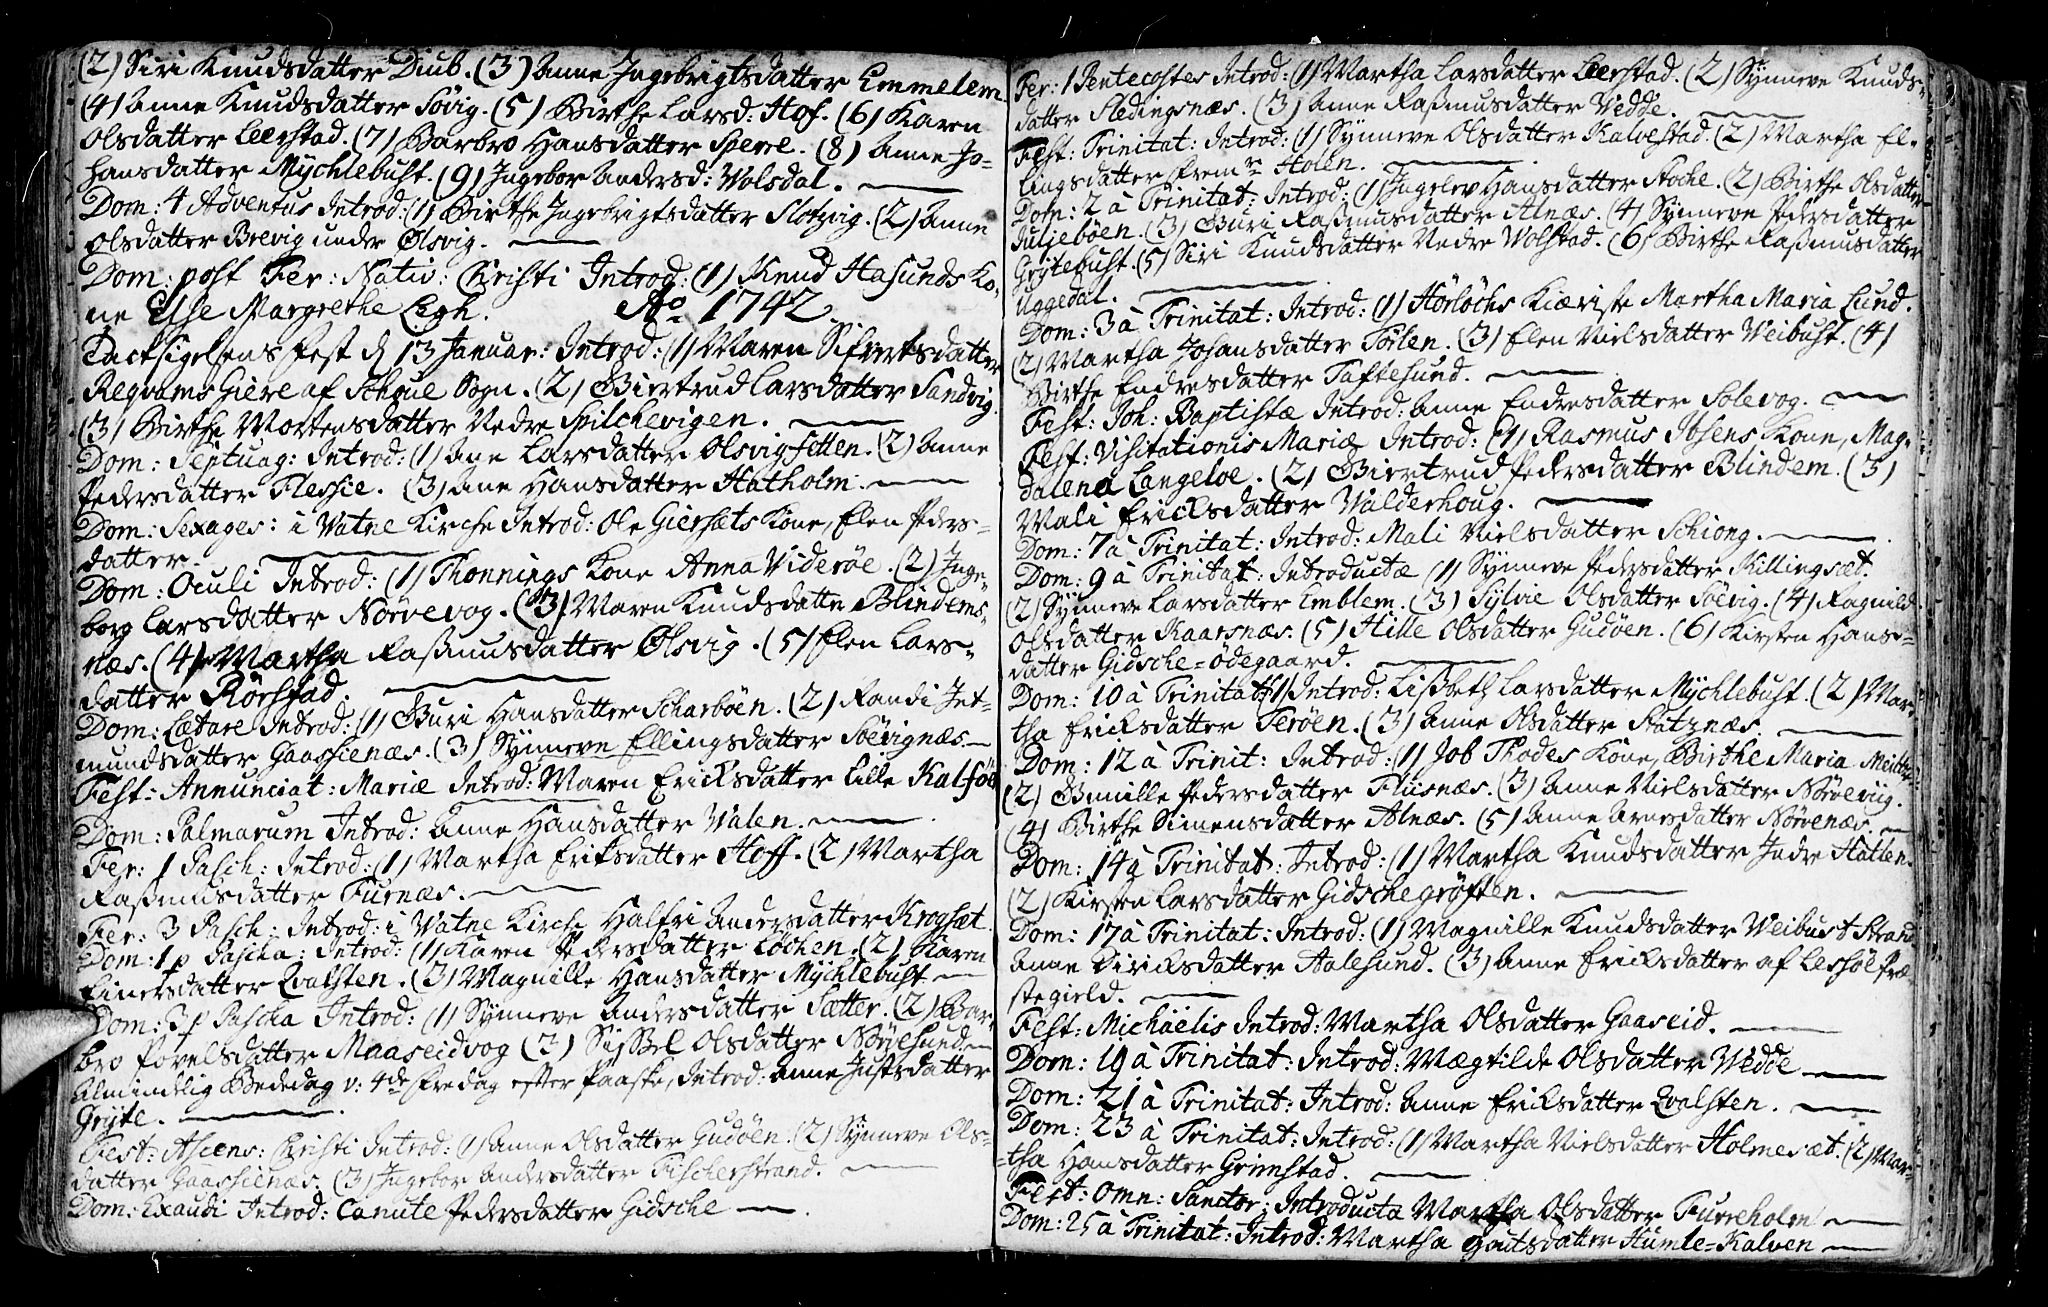 (2) Siri Knudsdatter Diub. (3) Anne Ingebrigtsdatter Emmelem
(4) Anne Knudsdatter Søvig. (5) Birthe Larsd: Hof. (6) Karen
Olsdatter Leerstad. (7) Barbro Hansdatter Sperre. (8) Anne Jo-
hansdatter Mychlebust. (9) Ingebor Andersd: Volsdal.
Dom: 4 Adventus Introd: (1) Birthe Ingebrigtsdatter Slotzvig. (2) Anne
Olsdatter Brevig under Ølsvig.
Dom: post Fer: Nativ: Christi Introd: (1) Knud Hasunds Ko-
ne Else Margrethe Legh. Ao. 1742.
Tacksigelsens Fest d 13 Januar: Introd: (1) Maren Sifvertsdatter
Reqvams Giere af Schoue Sogn. (2) Giertrud Larsdatter Sandvig.
(3) Birthe Mortensdatter Nedre Spilchevigen.
Dom: Septuag: Introd: (1) Ane Larsdatter Olsvigsetten. (2) Anne
Pedersdatter Flessie. (3) Ane Hansdatter Hatholm.
Dom: Sexages: i Vatne Kirche Introd: Ole Giersæts Kone, Elen Peders-
datter.
Dom: Oculi Introd: (1) Thonnings Kone Anna Viderøe. (2) Inge-
borg Larsdatter Nørvevog. (3) Maren Knudsdatter Blindems-
næs. (4) Martha Rasmusdatter Ølsvig. (5) Elen Lars-
datter Rørstad.
Dom: Lætare Introd: (1) Guri Hansdatter Scharbøen. (2) Randi Jet-
mundsdatter Gaassienæs. (3) Synneve Ellingsdatter Søevignæs
Fest: Annunciat: Mariæ Introd: Maren Ericksdatter Lille Kalsøe
Dom: Palmarum Introd: Anne Hansdatter Valen.
Fer: 1 Pasch: Introd: (1) Martha Eriksdatter Hoff. (2) Martha
Rasmusdatter Furnæs.
Fer: 3 Pasch: Introd: i Vatne Kirche Halfri Andersdatter Krogsæt.
Dom: 1 p Pascha: Introd: (1) Karen Pedersdatter Lochen. (2) Karen
Einersdatter Qvalsten. (3) Magnille Hansdatter Mychlebust
Dom: 3 p Pascha Introd: (1) Synneve Andersdatter Sætter. (2) Bar-
bro Povelsdatter Maaseidvog (3) Sissel Olsdatter Nørvesund
Almindelig Bededag v: 4de Fredag efter Paaske, Introd: Anne Justsdatter
Gryte.
Fest: Ascens: Christi Introd: (1) Anne Olsdatter Gudøen. (2) Synneve Ols-
datter Gaassienæs. (3) Ingebor Andersdatter Fischerstrand.
Dom: Exaudi Introd: Canute Pedersdatter Gidsche
Fer: 1 Pentecostes Introd: (1) Martha Larsdatter Leerstad. (2) Synneve Knuds-
datter Fledingsnæs. (3) Anne Rasmusdatter Vedde.
Fest: Trinitat: Introd: (1) Synneve Olsdatter Kalvestad. (2) Martha El-
lingsdatter Holen.
Dom: 2 à Trinitat: Introd: (1) Ingelev Hansdatter Stoche. (2) Birthe Olsdatter
Juljebøen. (3) Guri Rasmusdatter Alnæs. (4) Synneve Pedersdatter
Grytebust. (5) Siri Knudsdatter Nedre Volstad. (6) Birthe Rasmusdatter
Uggedal.
Dom: 3 à Trinitat: Introd: (1) Hørløchs Kiæriste Martha Maria Lund.
(2) Martha Johansdatter Tørlen. (3) Elen Nielsdatter Veibust. (4)
Birthe Endresdatter Taftesund.
Fest: Joh: Baptistæ Introd: Anne Endresdatter Solevog.
Fest: Visitationis Mariæ Introd: (1) Rasmus Ibsens Kone, Mag-
dalena Langeloe. (2) Giertrud Pedersdatter Blindem. (3)
Mali Ericksdatter Valderhoug.
Dom: 7 à Trinitat: Introd: Mali Nielsdatter Schiong.
Dom: 9 à Trinitat: Introductæ (1) Synneve Pedersdatter Killingsæt.
(2) Synneve Larsdatter Emblem. (3) Sylvie Olsdatter Søevig. (4) Ragnild
Olsdatter Kaarsnæs. (5) Hille Olsdatter Gudøen. (6) Kirsten Hans-
datter Gidsche-ødegaard.
Dom: 10 à Trinitat: (1) Introd: Lisbeth Larsdatter Mychlebust. (2) Mar-
tha Ericksdatter Terøen. (3) Anne Olsdatter Slotznæs.
Dom: 12 à Trinit: Introd: (1) Job Thodes Kone, Birthe Maria
(2) Gunille Pedersdatter Flisnæs. (3) Anne Nielsdatter Nørvevig.
(4) Birthe Simensdatter Alnæs. (5) Anne Arnesdatter Nørvenæs.
Dom: 14 à Trinitat: Introd: (1) Martha Knudsdatter Indre Hatlen.
(2) Kirsten Larsdatter Gidschegrøften.
Dom: 17 à Trinitat: Introd: (1) Magnille Knudsdatter Veibust Strand
Anne Diricksdatter Aalesund. (3) Anne Ericksdatter af Lessøe Præ
stegield.
Fest: Michäelis Introd: Martha Olsdatter Gaaseid.
Dom: 19 à Trinitat: Introd: Mægtilde Olsdatter Vedde
Dom: 21 à Trinitat: Introd: Anne Ericksdatter Qvalsten.
Dom: 23 à Trinitat: Introd: (1) Martha Nielsdatter Holmesæt. (2) Mar-
tha Hansdatter Grimstad.
Fest: Omn: Sanctor: Introducta Martha Olsdatter Furreholm
Dom: 25 à Trinitat: Introd: Martha Humle-Kalven